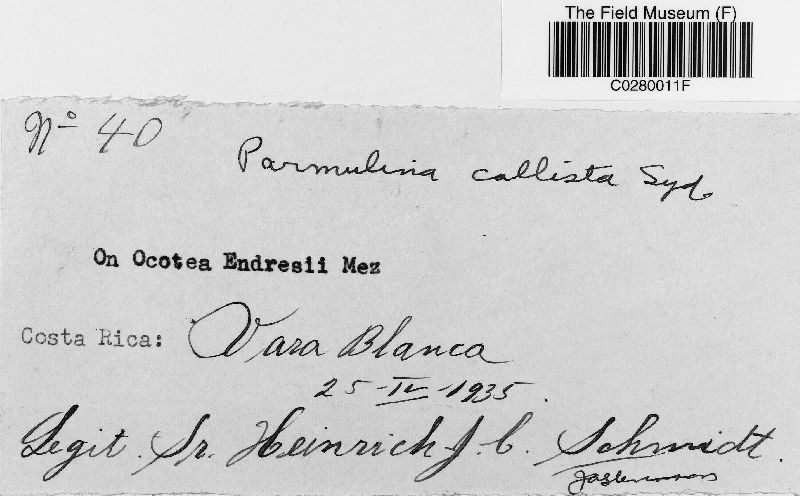 The Field Museum (F)
C0280011F
Nº 40
Parmulina callista Syd.
On Ocotea Endresii Mez
Costa Rica: Vara Blanca
25-IV-1935.
Legit. Sr. Heinrich J. C. Schmidt.